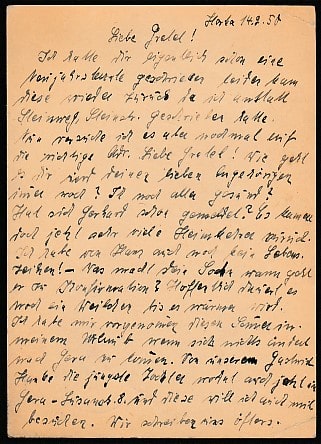 Horka 14.2.50
Liebe Gretel!
Ich hatte dir eigentlich schon eine
Neujahrskarte geschrieben leider kam
diese wieder zurück da ich anstatt
Steinweg, Steinstr. geschrieben hatte.
Nun versuche ich es aber nochmal auf
die richtige Adr. Liebe Gretel! Wie geht
es dir und deinen lieben Angehörigen
immer noch? Ist noch alles gesund?
Hat sich Gerhard schon gemeldet? Es kamen
doch jetzt sehr viele Heimkehrer zurück.
Ich habe von Hans auch noch kein Lebens-
zeichen! - Was macht dein Sohn wann geht
er zur Konfirmation? Hoffentlich dauert es
noch ein Weilchen bis es wärmer wird.
Ich habe mir vorgenommen diesen Sommer in
meinem Urlaub wenn sich nichts ändert
nach Gera zu kommen. Von unserem
die jüngste Tochter wohnt auch jetzt in
Gera - 8. und diese will ich auch mit
besuchen. Wir schreiben uns öfters.